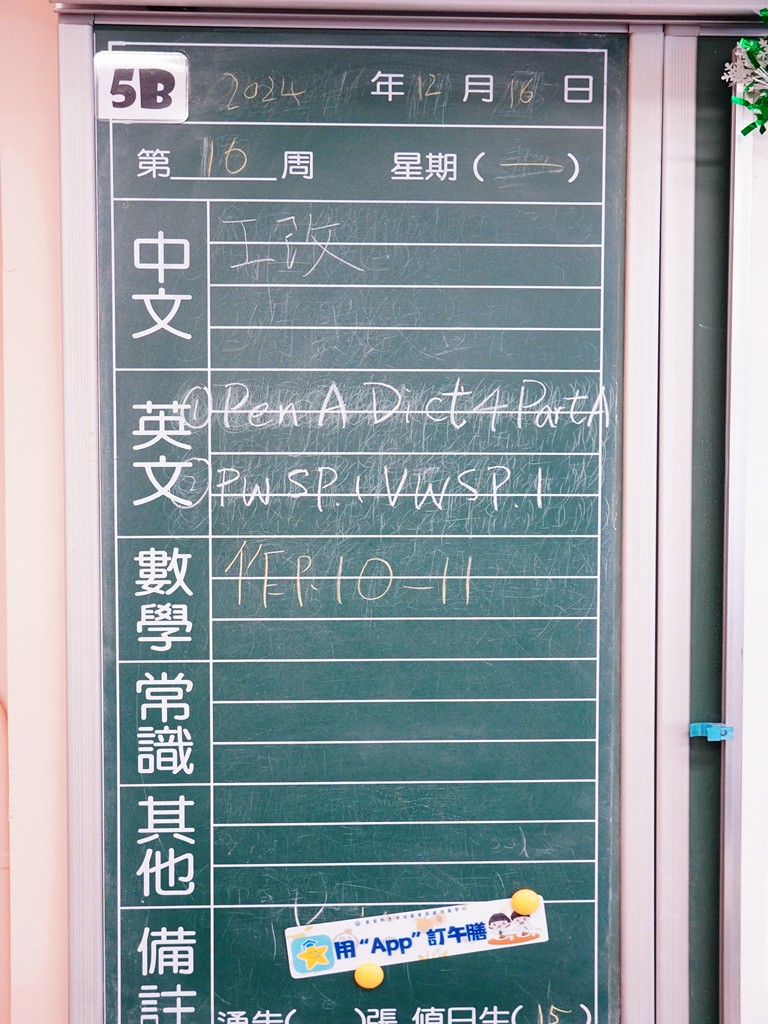 5B 2024年12月16日
第16周 星期(一)
中文
工改
英文
① Pen A Dict 4 Part A
② PWS P.1 VWS P.1
數學
作 P.10-11
常識
其他
備註
用“App”訂午膳
通告( )張 值日生(15)